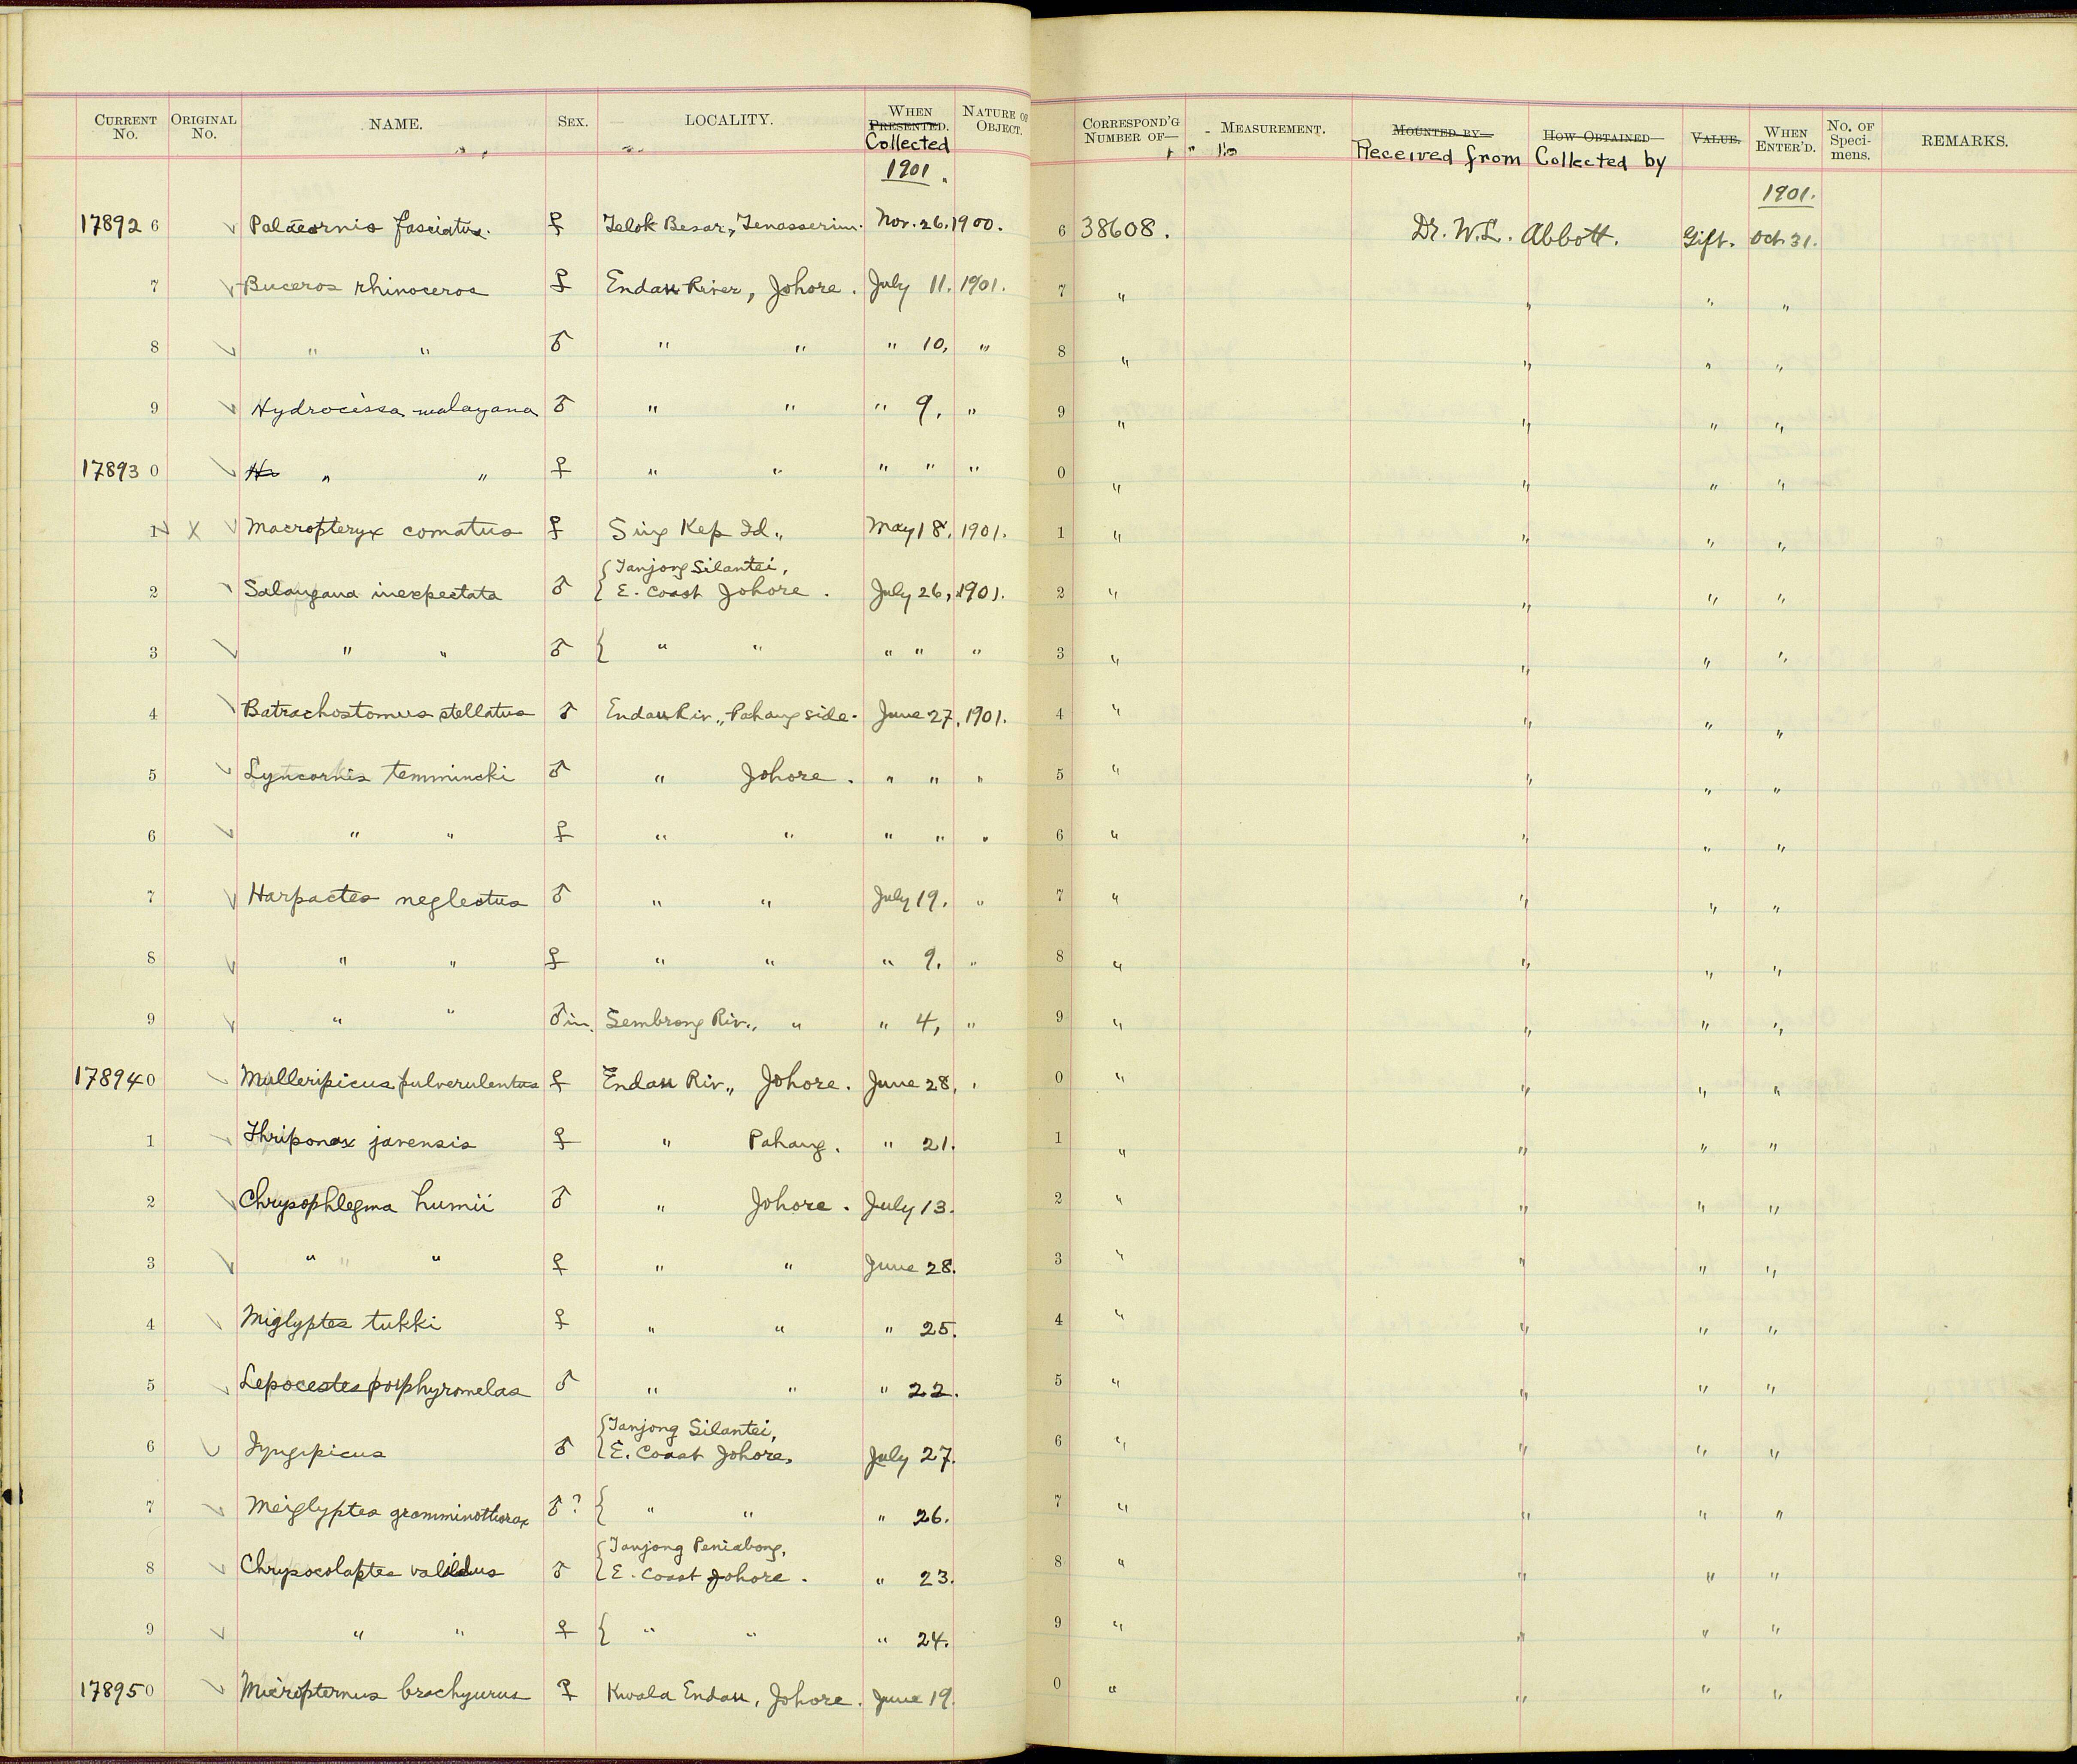 CURRENT No. ORIGINAL No. NAME. SEX. LOCALITY. WHEN PRESENTED. Collected NATURE OF OBJECT. CORRESPOND'G NUMBER OF— MEASUREMENT. MOUNTED BY— Received from HOW OBTAINED— Collected by VALUE. WHEN ENTER'D. No. OF Speci-mens. REMARKS.
1901. 1901.
17892 6 Palaeornis fasciatus. ♀ Telok Besar, Tenasserim. Nov. 26. 1900. 6 38608. Dr. W.L. Abbott. Gift. Oct. 31.
7 Buceros rhinoceros ♀ Endau River, Johore. July 11. 1901. 7 " " " "
8 " " ♂ " " " 10, " 8 " " " "
9 Hydrocissa malayana ♂ " " " 9, " 9 " " " "
17893 0 " " ♀ " " " " " 0 " " " "
1 X Macropteryx comatus ♀ Sing Kep Id., May 18, 1901. 1 " " " "
2 Salangana inexpectata ♂ { Tanjong Silantei,
E. Coast Johore. July 26, 1901. 2 " " " "
3 " " ♂ { " " " " " 3 " " " "
4 Batrachostomus stellatus ♂ Endau Riv., Pahang side. June 27, 1901. 4 " " " "
5 Lyncornis temmincki ♂ " Johore. " " " 5 " " " "
6 " " ♀ " " " " " 6 " " " "
7 Harpactes neglectus ♂ " " July 19. " 7 " " " "
8 " " ♀ " " " 9. " 8 " " " "
9 " " ♂ im. Sembrong Riv., " " 4, " 9 " " " "
17894 0 Mulleripicus pulverulentus ♀ Endau Riv., Johore. June 28, " 0 " " " "
1 Thriponax javensis ♀ " Pahang. " 21. 1 " " " "
2 Chrysophlegma humii ♂ " Johore. July 13. 2 " " " "
3 " " ♀ " " June 28. 3 " " " "
4 Miglyptes tukki ♀ " " " 25. 4 " " " "
5 Lepocestes porphyromelas ♂ " " " 22. 5 " " " "
6 Iyngipicus ♂ { Tanjong Silantei,
E. Coast Johore, July 27. 6 " " " "
7 Meiglyptes gramminothorax ♂? { " " " 26. 7 " " " "
8 Chrysocolaptes validus ♂ { Tanjong Peniabong,
E. Coast Johore. " 23. 8 " " " "
9 " " ♀ { " " " 24. 9 " " " "
17895 0 Micropternus brachyurus ♀ Kwala Endau, Johore. June 19. 0 " " " "